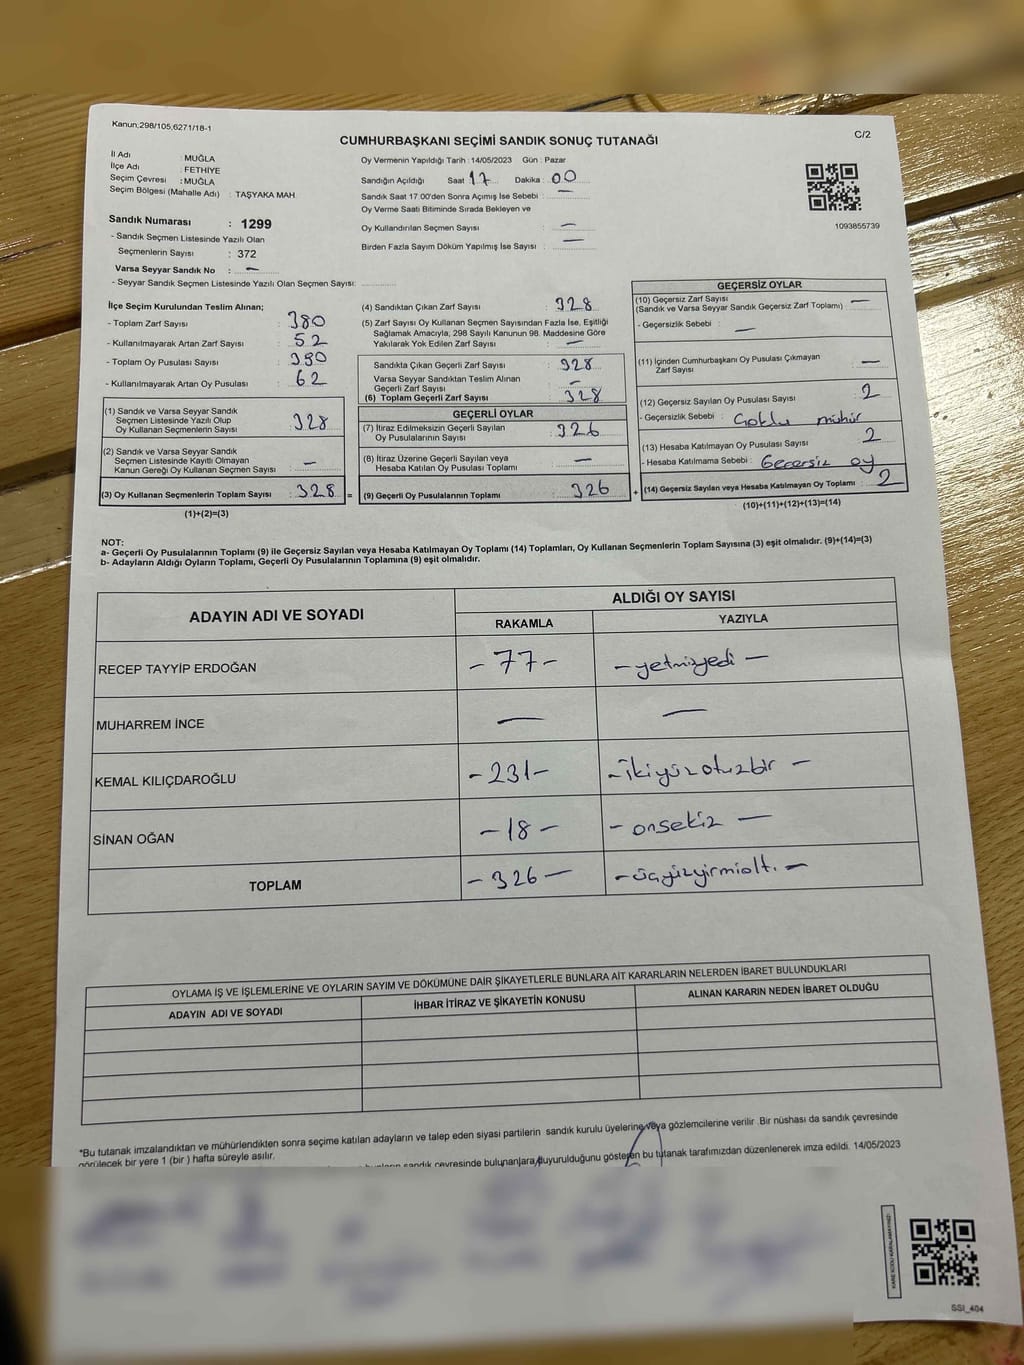 Kanun;298/105,6271/18-1
C/2
CUMHURBAŞKANI SEÇİMİ SANDIK SONUÇ TUTANAĞI
İl Adı : MUĞLA
İlçe Adı : FETHİYE
Seçim Çevresi : MUĞLA
Seçim Bölgesi (Mahalle Adı) : TAŞYAKA MAH.
Sandık Numarası : 1299
- Sandık Seçmen Listesinde Yazılı Olan
Seçmenlerin Sayısı : 372
Varsa Seyyar Sandık No : —
- Seyyar Sandık Seçmen Listesinde Yazılı Olan Seçmen Sayısı:
Oy Vermenin Yapıldığı Tarih : 14/05/2023 Gün : Pazar
Sandığın Açıldığı Saat 17 Dakika : 00
Sandık Saat 17.00'den Sonra Açımış İse Sebebi : —
Oy Verme Saati Bitiminde Sırada Bekleyen ve
Oy Kullandırılan Seçmen Sayısı : —
Birden Fazla Sayım Döküm Yapılmış İse Sayısı : —
1093855739
İlçe Seçim Kurulundan Teslim Alınan;
- Toplam Zarf Sayısı : 380
- Kullanılmayarak Artan Zarf Sayısı : 52
- Toplam Oy Pusulası Sayısı : 390
- Kullanılmayarak Artan Oy Pusulası : 62
(1) Sandık ve Varsa Seyyar Sandık
Seçmen Listesinde Yazılı Olup
Oy Kullanan Seçmenlerin Sayısı : 328
(2) Sandık ve Varsa Seyyar Sandık
Seçmen Listesinde Kayıtlı Olmayan
Kanun Gereği Oy Kullanan Seçmen Sayısı : —
(3) Oy Kullanan Seçmenlerin Toplam Sayısı : 328 =
(1)+(2)=(3)
(4) Sandıktan Çıkan Zarf Sayısı : 328
(5) Zarf Sayısı Oy Kullanan Seçmen Sayısından Fazla İse, Eşitliği
Sağlamak Amacıyla, 298 Sayılı Kanunun 98. Maddesine Göre
Yakılarak Yok Edilen Zarf Sayısı : —
Sandıkta Çıkan Geçerli Zarf Sayısı : 328
Varsa Seyyar Sandıktan Teslim Alınan
Geçerli Zarf Sayısı : —
(6) Toplam Geçerli Zarf Sayısı : 328
GEÇERLİ OYLAR
(7) İtiraz Edilmeksizin Geçerli Sayılan
Oy Pusulalarının Sayısı : 326
(8) İtiraz Üzerine Geçerli Sayılan veya
Hesaba Katılan Oy Pusulası Toplamı : —
(9) Geçerli Oy Pusulalarının Toplamı : 326 +
GEÇERSİZ OYLAR
(10) Geçersiz Zarf Sayısı
(Sandık ve Varsa Seyyar Sandık Geçersiz Zarf Toplamı) : —
- Geçersizlik Sebebi : —
(11) İçinden Cumhurbaşkanı Oy Pusulası Çıkmayan
Zarf Sayısı : —
(12) Geçersiz Sayılan Oy Pusulası Sayısı : 2
- Geçersizlik Sebebi : Çoklu mühür
(13) Hesaba Katılmayan Oy Pusulası Sayısı : 2
- Hesaba Katılmama Sebebi : Geçersiz oy
(14) Geçersiz Sayılan veya Hesaba Katılmayan Oy Toplamı : 2
(10)+(11)+(12)+(13)=(14)
NOT:
a- Geçerli Oy Pusulalarının Toplamı (9) ile Geçersiz Sayılan veya Hesaba Katılmayan Oy Toplamı (14) Toplamları, Oy Kullanan Seçmenlerin Toplam Sayısına (3) eşit olmalıdır. (9)+(14)=(3)
b- Adayların Aldığı Oyların Toplamı, Geçerli Oy Pusulalarının Toplamına (9) eşit olmalıdır.
ADAYIN ADI VE SOYADI
ALDIĞI OY SAYISI
RAKAMLA YAZIYLA
RECEP TAYYİP ERDOĞAN -77- -yetmişyedi-
MUHARREM İNCE — —
KEMAL KILIÇDAROĞLU -231- -ikiyüzotuzbir-
SİNAN OĞAN -18- -onsekiz-
TOPLAM -326- -üçyüzyirmialtı-
OYLAMA İŞ VE İŞLEMLERİNE VE OYLARIN SAYIM VE DÖKÜMÜNE DAİR ŞİKAYETLERLE BUNLARA AİT KARARLARIN NELERDEN İBARET BULUNDUKLARI
ADAYIN ADI VE SOYADI İHBAR İTİRAZ VE ŞİKAYETİN KONUSU ALINAN KARARIN NEDEN İBARET OLDUĞU
*Bu tutanak imzalandıktan ve mühürlendikten sonra seçime katılan adayların ve talep eden siyasi partilerin sandık kurulu üyelerine veya gözlemcilerine verilir .Bir nüshası da sandık çevresinde
görülecek bir yere 1 (bir ) hafta süreyle asılır.
sandık çevresinde bulunanlara duyurulduğunu gösteren bu tutanak tarafımızdan düzenlenerek imza edildi. 14/05/2023
SSI_404